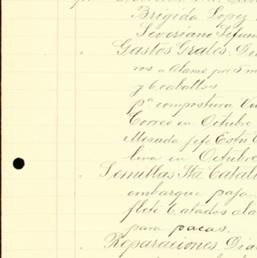 Brigida Lopez
Severiano
Gastos Grales.
ros a Alamo por 5 m
y 6 caballos
pr compostura
Correo en Octubre
Mesada jefe Estn C
lina en Octubre
Semillas Sta Catal
embarque paja
flete 6 atados ala
para pacas.
Reparaciones Dia